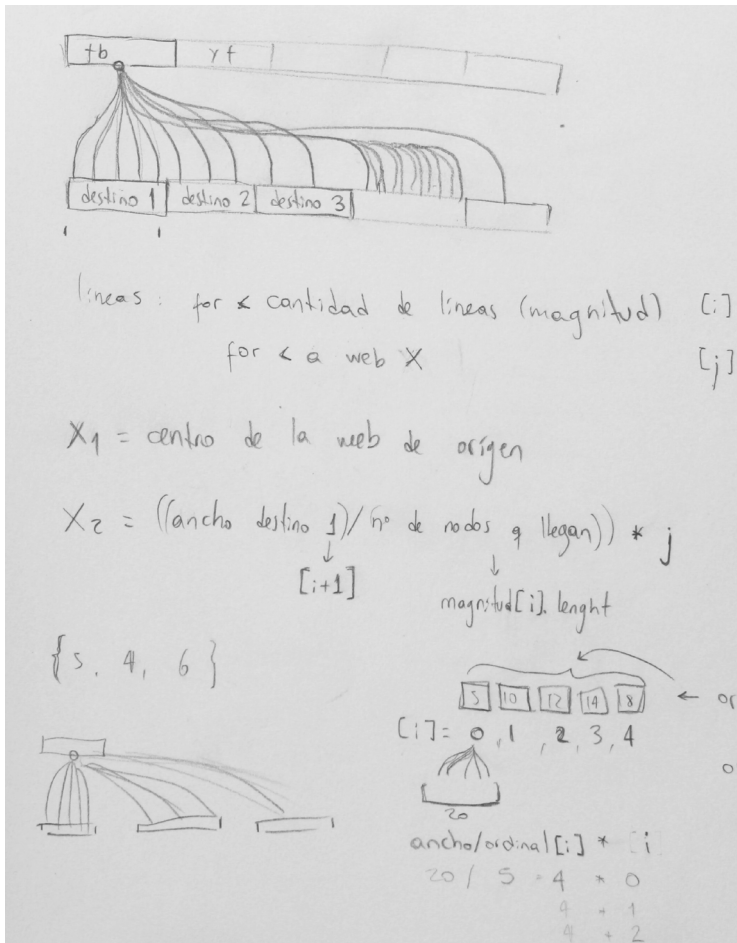 fb yt
destino 1 destino 2 destino 3
líneas: for < cantidad de líneas (magnitud) [i]
for < a web X [j]
X1 = centro de la web de orígen
X2 = ((ancho destino 1)/nº de nodos q llegan)) * j
[i+1]
magnitud[i].lenght
{5, 4, 6}
5 10 12 14 8 ← or
[i]= 0, 1, 2, 3, 4
o
20
ancho/ordinal[i] * [i
20 / 5 = 4 * 0
4 * 1
4 * 2